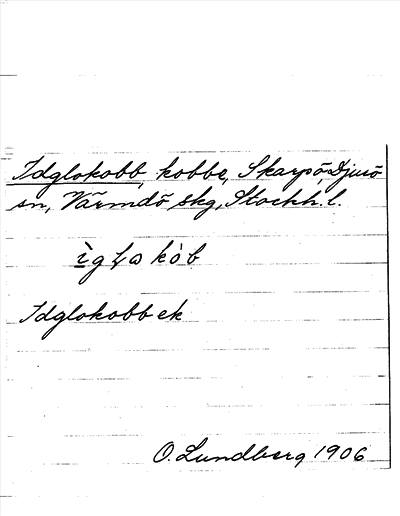 Idglokobb, kobbe, Skarpö, Djurö
sn, Värmdö skg, Stockh. l.
Idglokobb ek
O. Lundberg 1906